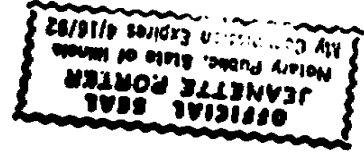 OFFICIAL SEAL
JEANETTE PORTER
Notary Public, State of Illinois
My Commission Expires 4/16/92